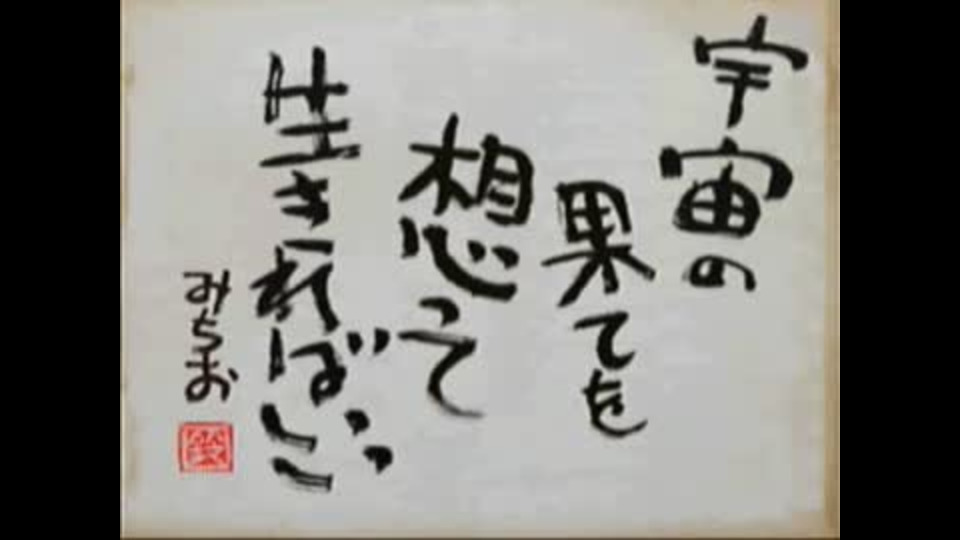 宇宙の
果てを
想って
生きればいい
みちお